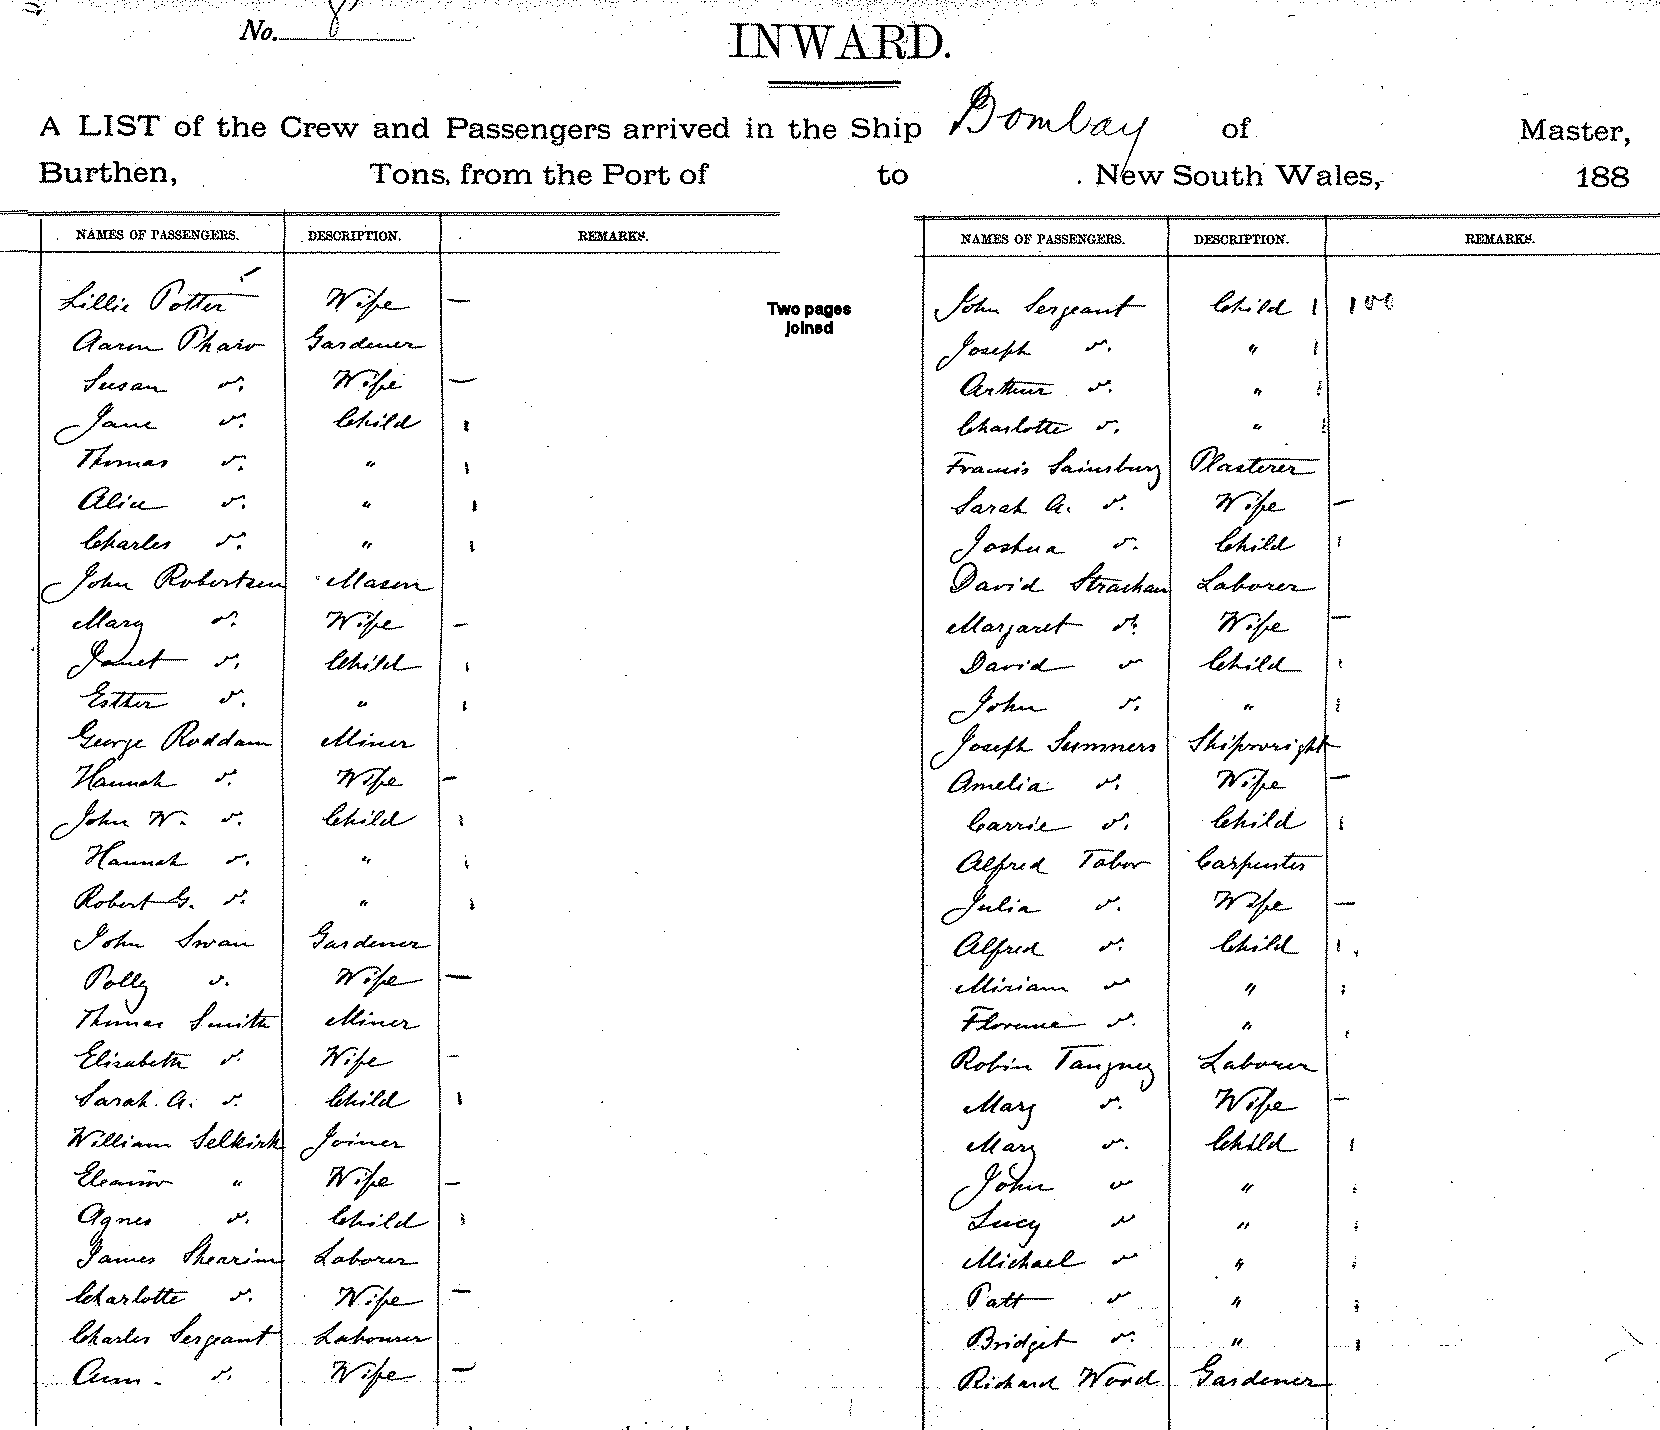 No. 8
INWARD.
A LIST of the Crew and Passengers arrived in the Ship Bombay of Master,
Burthen, Tons, from the Port of to New South Wales, 188
NAMES OF PASSENGERS. DESCRIPTION. REMARKS.
Lillie Potter Wife —
Aaron Pharo Gardener
Susan do. Wife —
Jane do. Child
Thomas do. "
Alice do. "
Charles do. "
John Robertson Mason
Mary do. Wife –
Janet do. Child
Esther do. "
George Roddam Miner
Hannah do. Wife –
John W. do. Child
Hannah do. "
Robert G. do. "
John Swan Gardener
Polly do. Wife —
Thomas Smith Miner
Elizabeth do. Wife –
Sarah. A. do. Child
William Selkirk Joiner
Eleanor " Wife –
Agnes do. Child
James Shearim Laborer
Charlotte do. Wife —
Charles Sergeant Labourer
Ann - do. Wife —
Two pages
joined
NAMES OF PASSENGERS. DESCRIPTION. REMARKS.
John Sergeant Child 1 100
Joseph do. "
Arthur do. "
Charlotte do. "
Francis Sainsbury Plasterer
Sarah A. do. Wife —
Joshua do. Child
David Strachan Laborer
Margaret do. Wife —
David do Child
John do. "
Joseph Summers Shipwright
Amelia do. Wife —
Carrie do. Child
Alfred Tabor Carpenter
Julia do. Wife —
Alfred do. Child
Miriam do "
Florence do. "
Robin Tangney Laborer
Mary do. Wife –
Mary do. Child
John do "
Lucy do "
Michael do "
Patt do "
Bridget do. "
Richard Wood Gardener